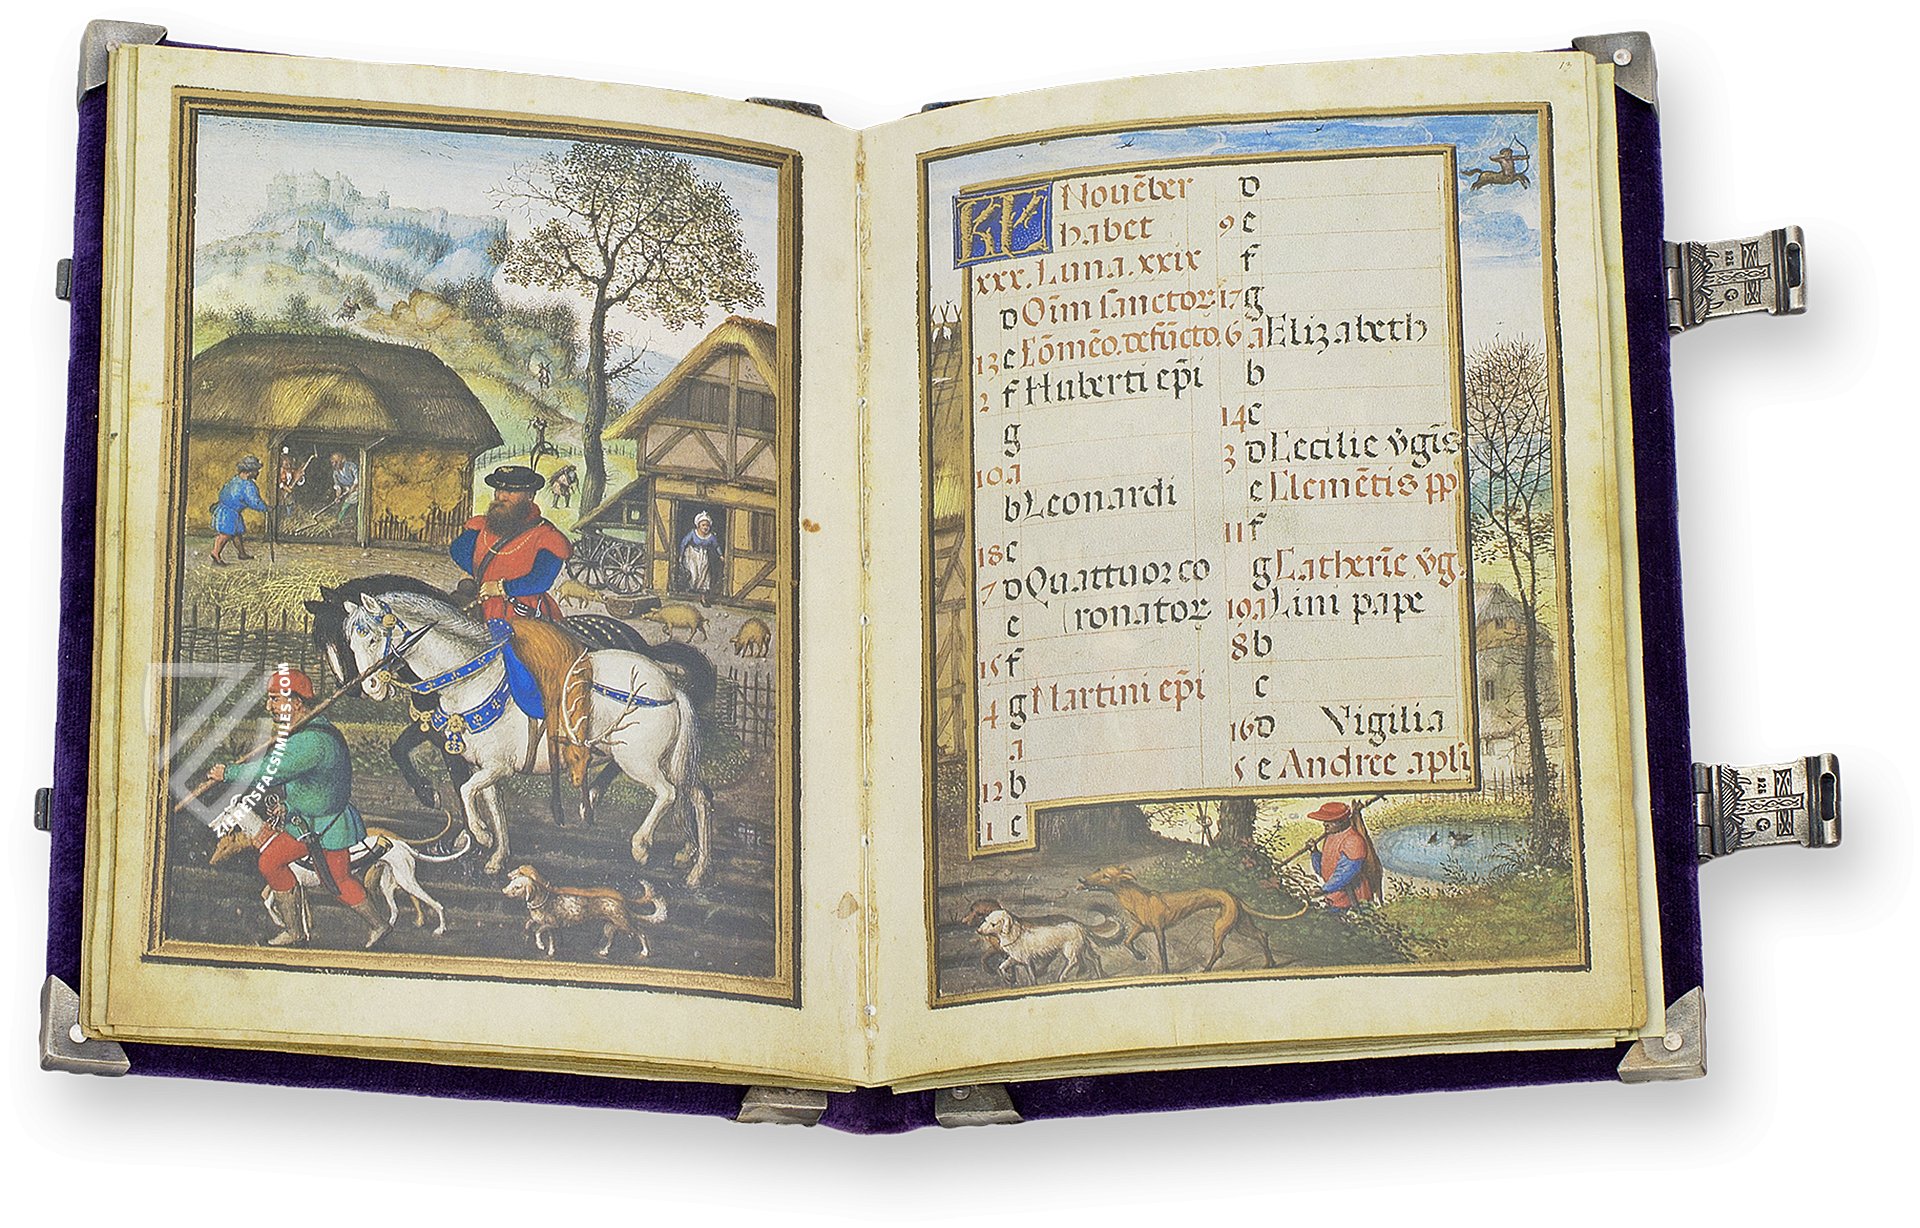 13
KL Nouēber
habet
xxx. Luna. xxix
d Oīm sanctor
13 e Cōmēo. defūcto.
2 f Huberti ep̄i
g
10 a
b Leonardi
18 c
7 d Quattuor co
e ronator
15 f
4 g Martini ep̄i
a
12 b
1 c
d
9 e
f
17 g
6 a Elizabeth
b
14 c
3 d Cecilie v̄gīs
e Clemētis pp
11 f
g Catherīe v̄g.
19 a Lini pape
8 b
c
16 d Vigilia
5 e Andree apl̄i
ZIEREISFACSIMILES.COM
925
925